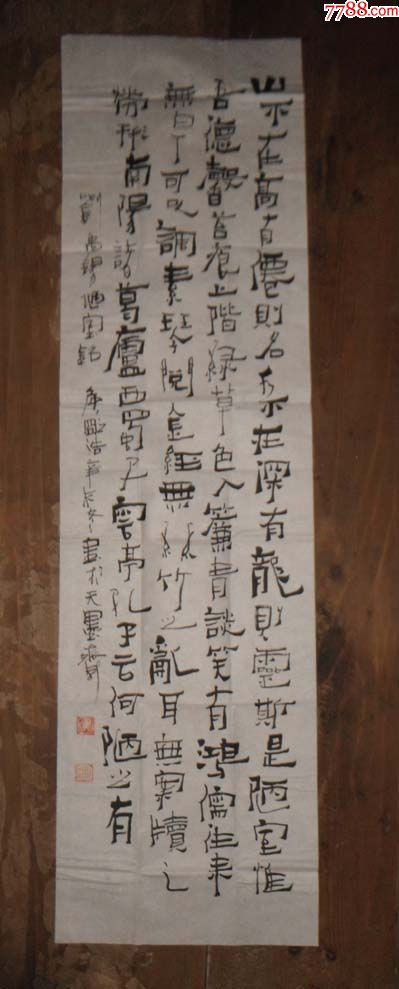 7788.com
山不在高有僊則名水不在深有龍則靈斯是陋室惟
吾德馨苔痕上階綠草色入簾青談笑有鴻儒往來
無白丁可以調素琴閱金經無絲竹之亂耳無案牘之
勞形南陽諸葛廬西蜀子雲亭孔子云何陋之有
劉禹錫陋室銘 浩華 冬書於天墨齋